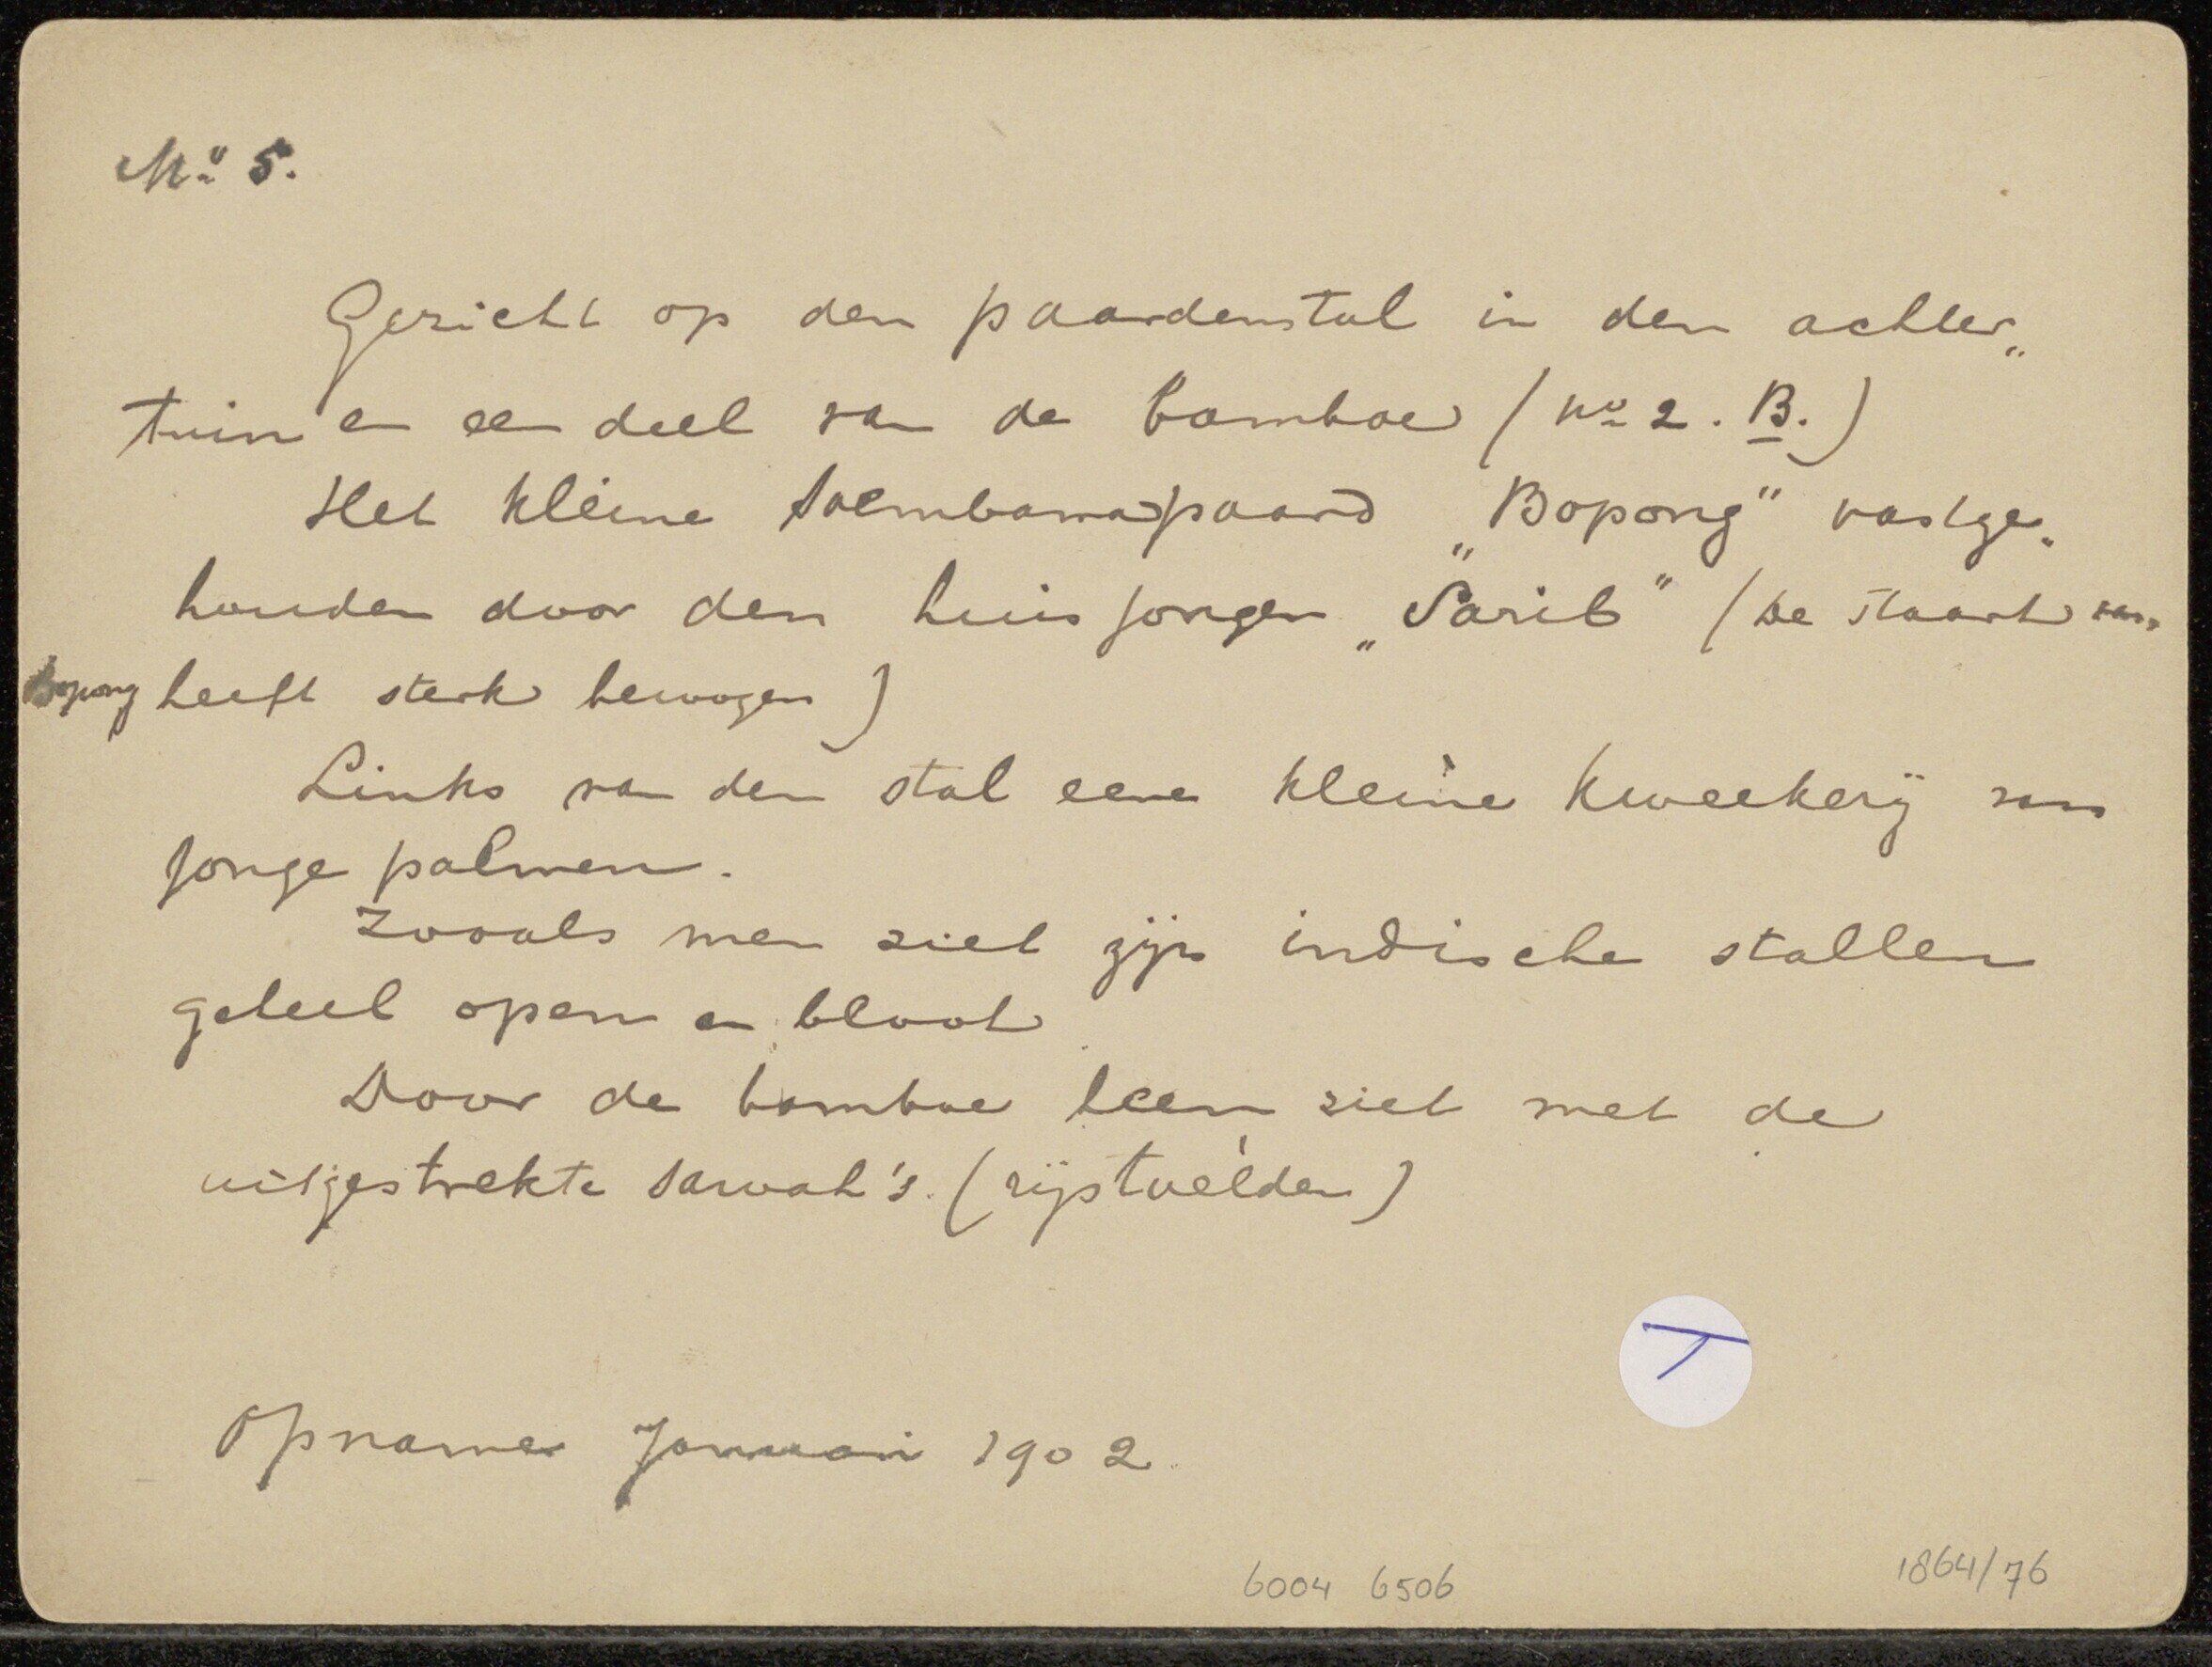 No 5.
Gezicht op den paardenstal in den achter„
tuin en een deel van de bamboe (No 2. B.)
Het kleine Soembawapaard „Bopong" vastge„
houden door den huisjongen „Sarib" (De staart van
Bopong heeft sterk bewogen)
Links van den stal eene kleine kweekerij van
jonge palmen.
Zooals men ziet zijn indische stallen
geheel open en bloot
Door de bamboe heen ziet met de
uitgestrekte sawah's. (rijstvelden)
Opname Januari 1902.
T
6004 6506
1864/76